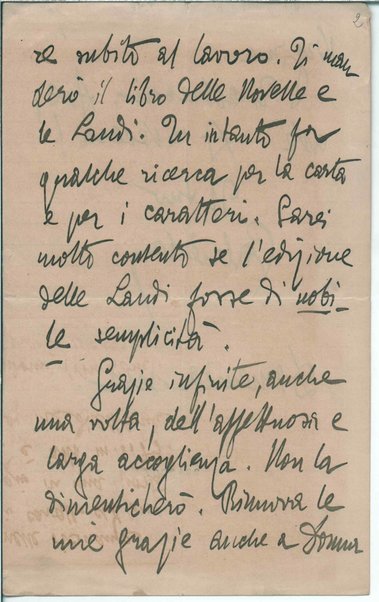 2
re subito al lavoro. Ti man
derò il libro delle Novelle e
le Laudi. Tu intanto fa
qualche ricerca per la carta
e per i caratteri. Sarei
molto contento se l'edizione
delle Laudi fosse di nobi-
le semplicità.
Grazie infinite, anche
una volta, dell'affettuosa e
larga accoglienza. Non la
dimenticherò. Rinnova le
mie grazie anche a Donna